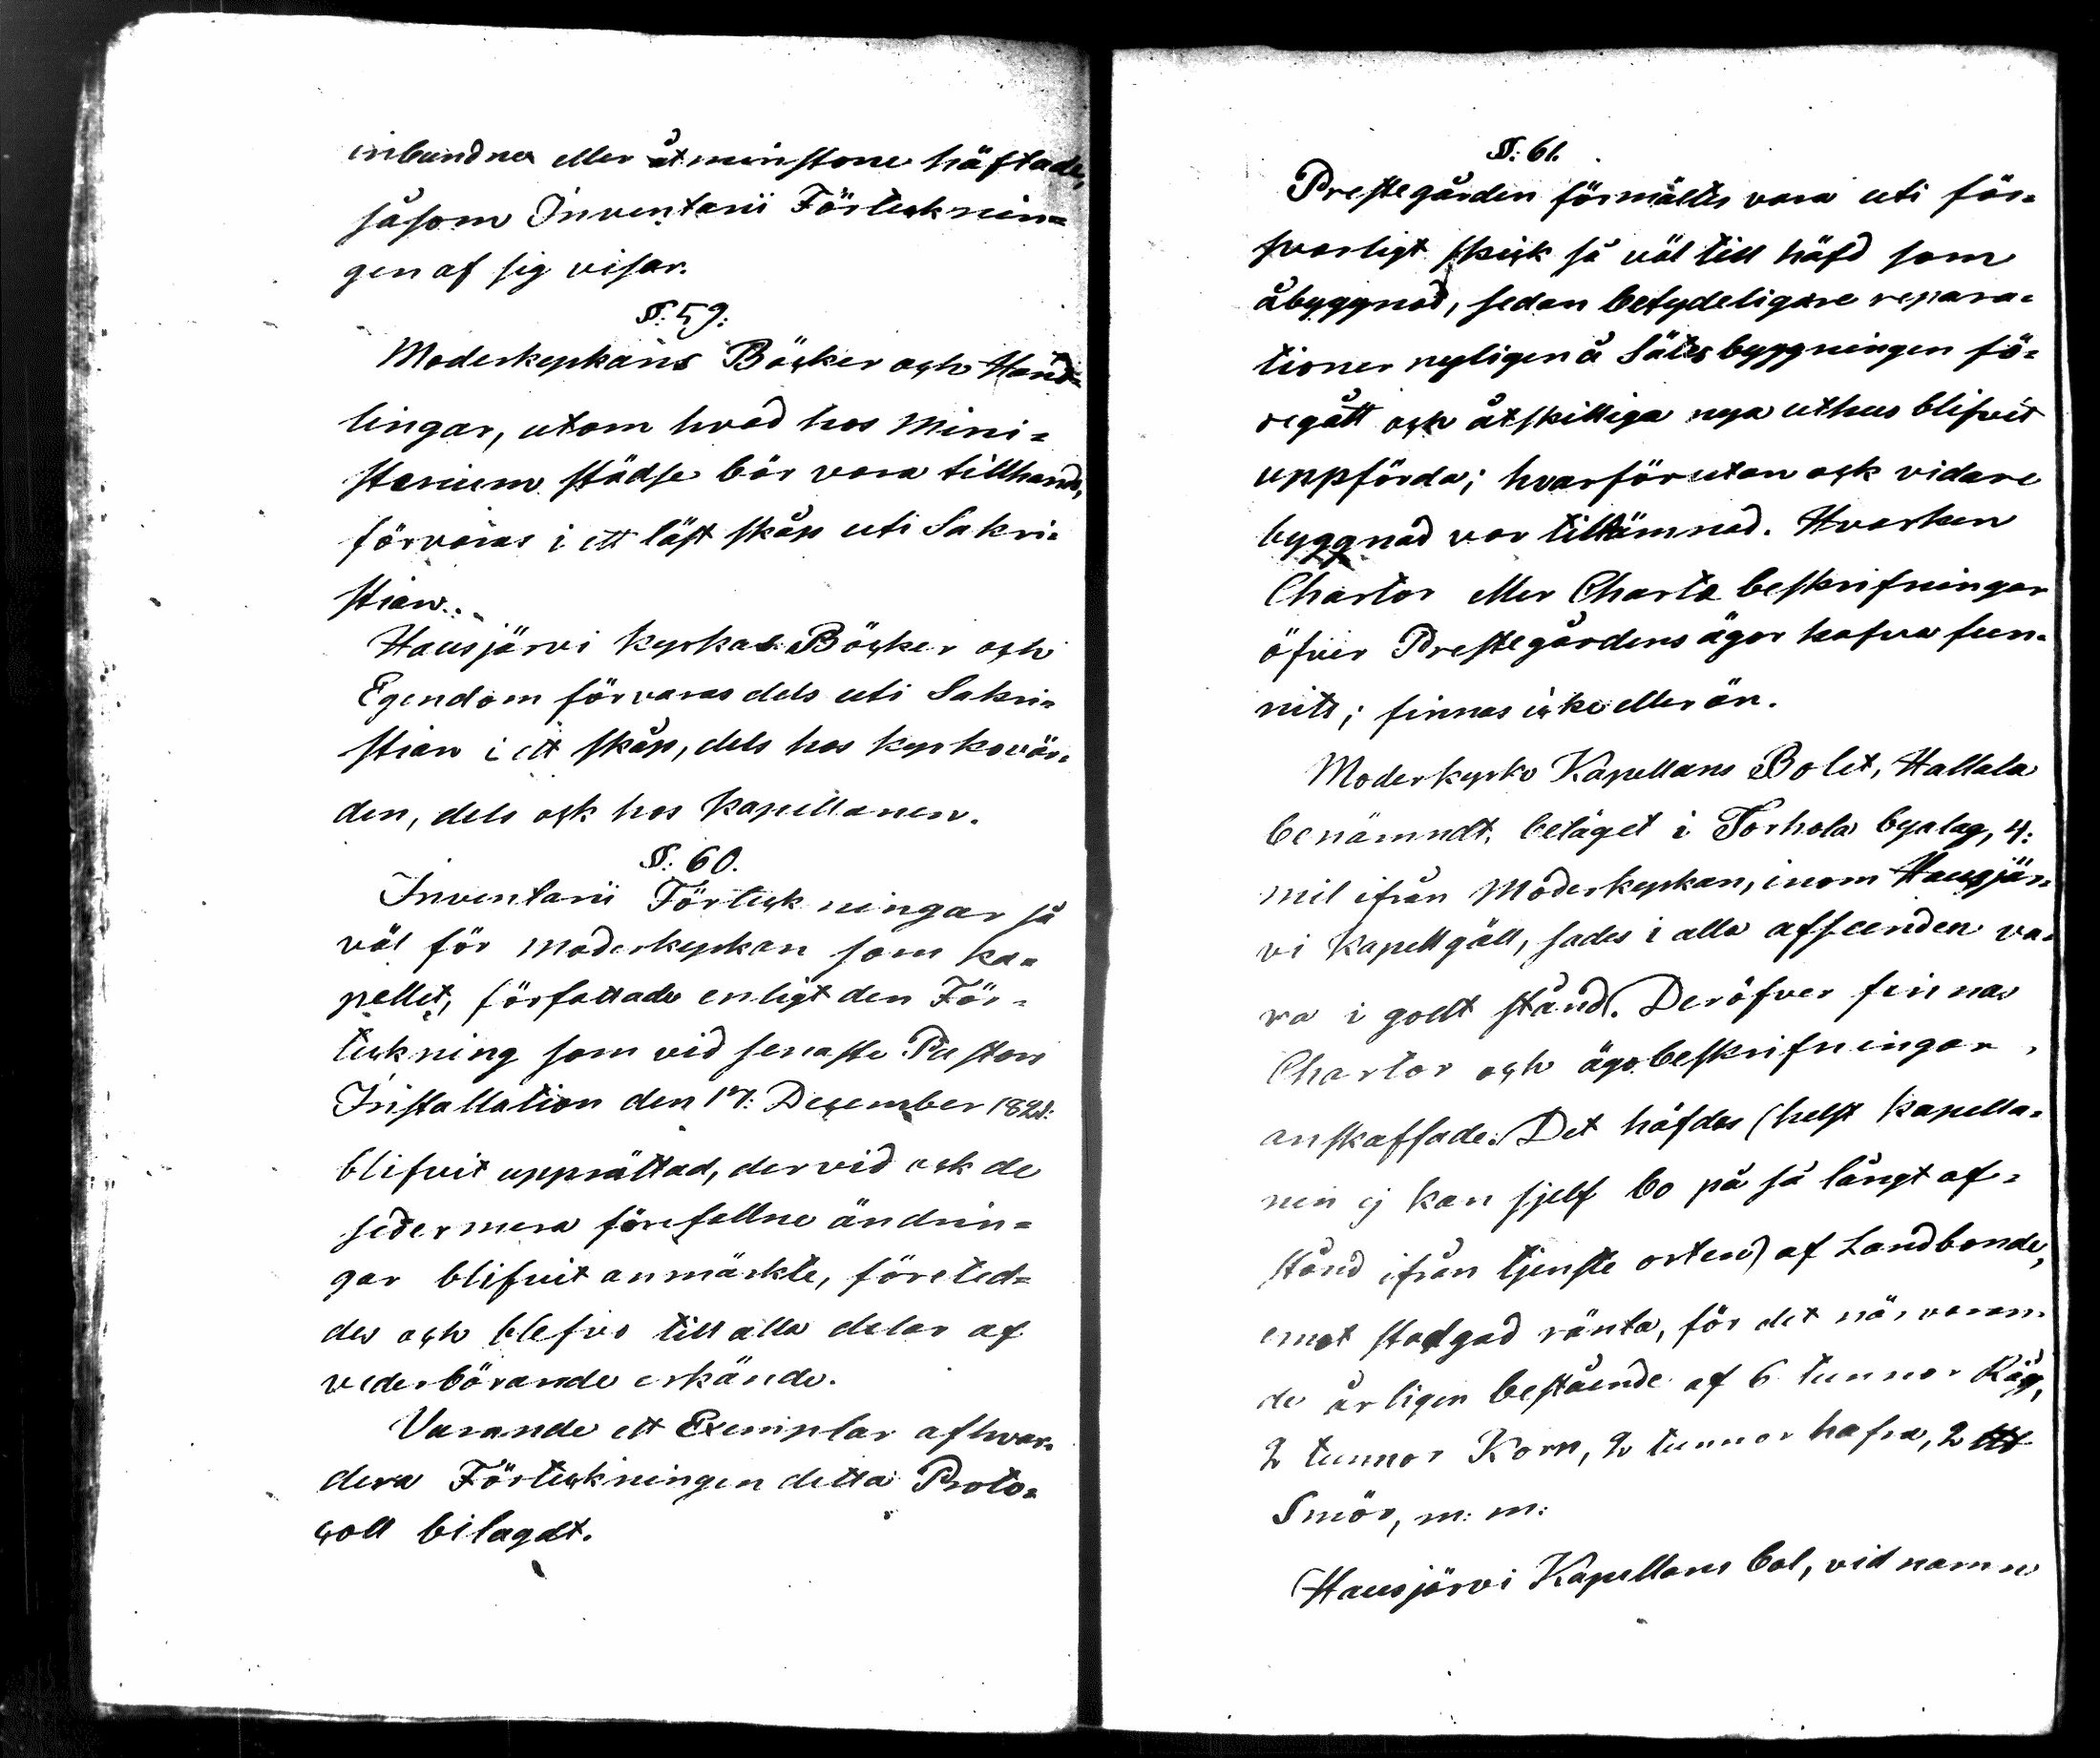 inbundna eller åtminstone häftade,
såsom Inventarii Förteckninn=
gen af sig visar.
§: 59:
Moderkyrkans Böcker och Hand=
lingar, utom hvad hos Mini=
sterium städse bör vara tillhands,
förvaras i ett låst skåp uti Sakri=
stian.
Hausjärvi kyrkas Böcker och
Egendom förvaras dels uti Sakri=
stian i ett skåp, dels hos kyrkovär=
den, dels ock hos Kapellanen.
§: 60.
Inventarii Förteckningar så
väl för moderkyrkan som ka=
pellet, författade enligt den För=
teckning som vid senaste Pastors
Installation den 17: December
blifvit upprättad, dervid ock de
sedermera förefallne ändrin=
gar blifvit anmärkte, företed=
des och blefvo till alla delar af
vederbörande erkände.
Varande ett Exemplar af hvar=
dera Förteckningen detta Proto=
coll bilagdt.
§: 61.
Prestegården förmältes vara uti för=
svarligt skick så väl till häfd som
åbyggnad, sedan betydeligare repara=
tioner nyligen å Sätesbyggningen fö=
regått och åtskilliga nya uthus blifvit
uppförda; hvarförutan ock vidare
byggnad var tillämnad. Hvarken
Chartor eller Charta beskrifningar
öfver Prestegårdens ägor hafva fun=
nits; finnas icke eller än.
Moderkyrko Kapellans Bolet, Hallala
benämndt, beläget i Torhola byalag, 4:
mil ifrån Moderkyrkan, inom Hausjär=
vi Kapellgäll, sades i alla afseenden va=
ra i godt stånd. Deröfver finnas
Chartor och ägobeskrifningar
anskaffade. Det häfdas (helst kapella=
nen ej kan sjelf bo på så långt af=
stånd ifrån tjenste orten) af Landbonde,
emot stadgad ränta, för det närvaran=
de årligen bestående af 6 tunnor Råg,
2 tunnor Korn, 2 tunnor hafra, 2 L℔
Smör, m: m:
Hausjärvi Kapellans bol, vid namn